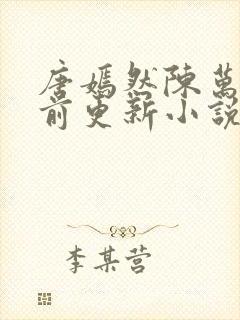 唐嫣然陳萬
前更新小說
李某营